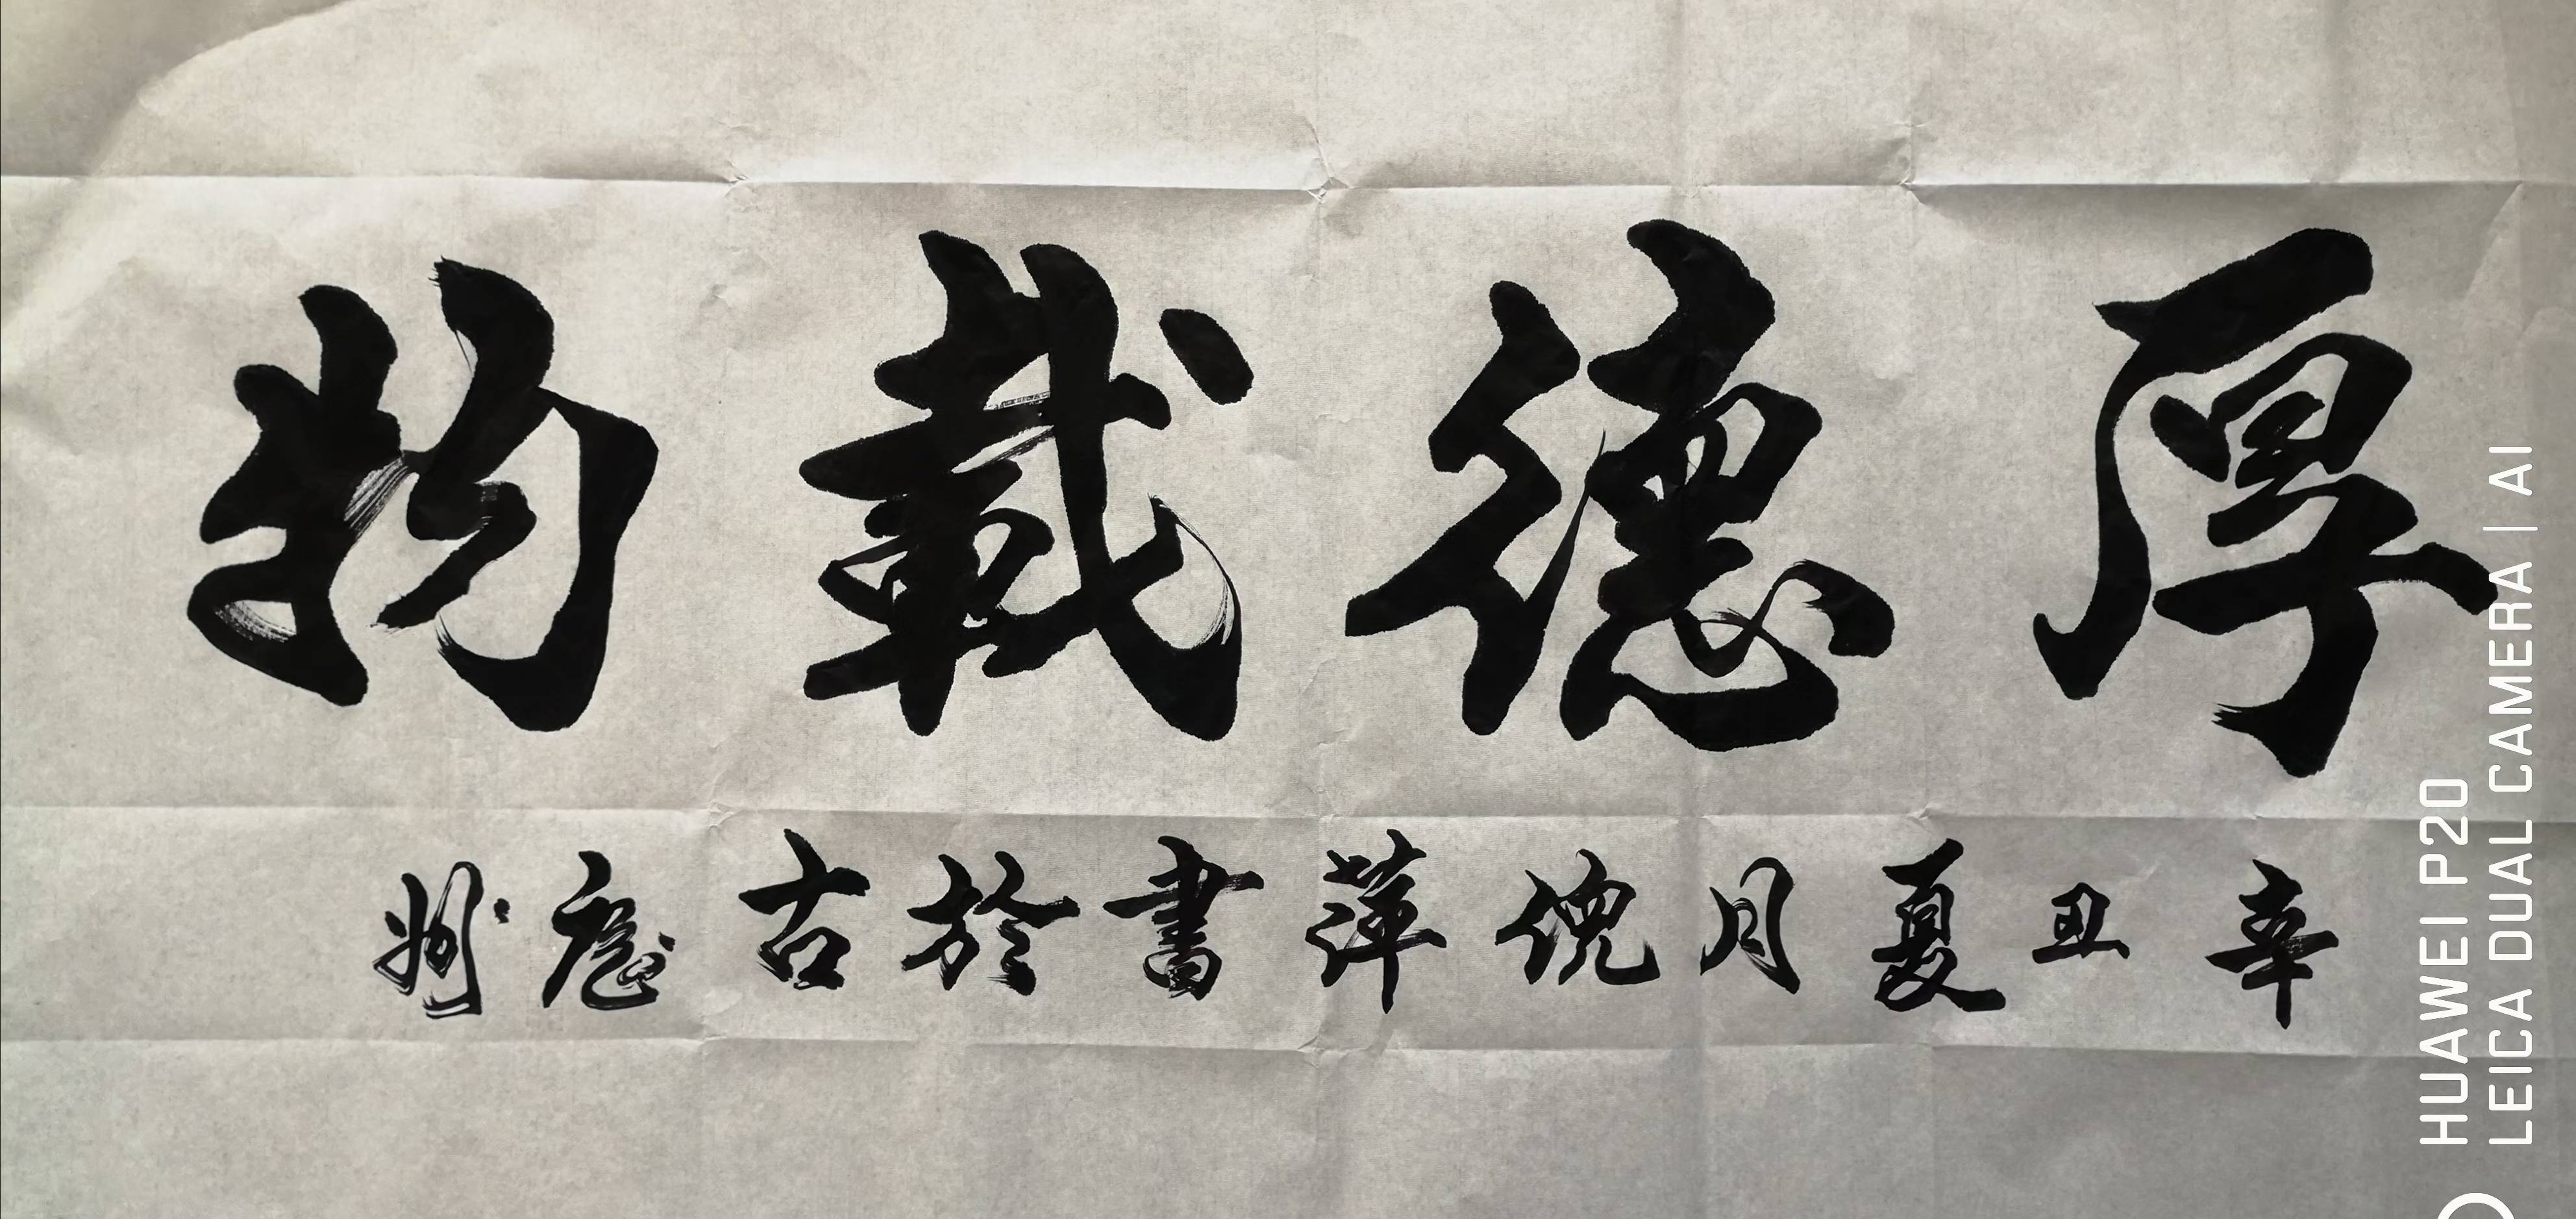 厚德載物
辛丑夏月倪萍書於古廬州
HUAWEI P20
LEICA DUAL CAMERA | AI